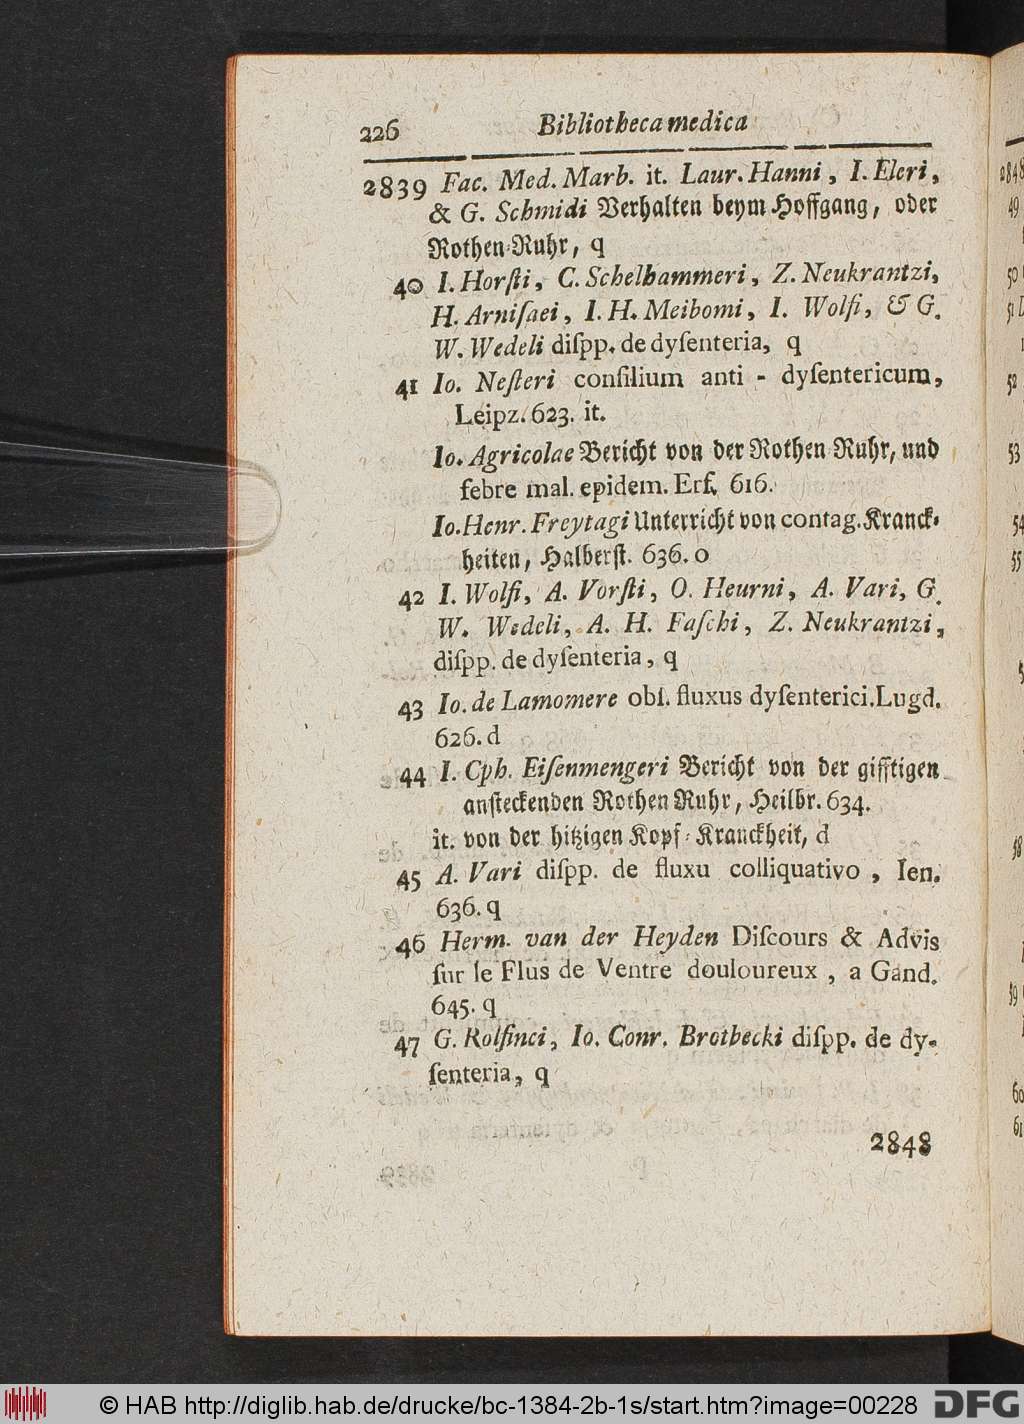 226 Bibliotheca medica
2839 Fac. Med. Marb. it. Laur. Hanni, I. Eleri,
& G. Schmidi Verhalten beym Hoffgang, oder
Rothen-Ruhr, q
40 I. Horſti, C. Schelhammeri, Z. Neukrantzi,
H. Arniſaei, I. H. Meibomi, I. Wolfi, & G.
W. Wedeli diſpp. de dyſenteria, q
41 Io. Neſteri conſilium anti - dyſentericum,
Leipz. 623. it.
Io. Agricolae Bericht von der Rothen Ruhr, und
febre mal. epidem. Erf. 616.
Io. Henr. Freytagi Unterricht von contag. Kranck-
heiten, Halberſt. 636. o
42 I. Wolfi, A. Vorſti, O. Heurni, A. Vari, G.
W. Wedeli, A. H. Faſchi, Z. Neukrantzi,
diſpp. de dyſenteria, q
43 Io. de Lamomere obſ. fluxus dyſenterici. Lugd.
626. d
44 I. Cph. Eiſenmengeri Bericht von der gifftigen
anſteckenden Rothen Ruhr, Heilbr. 634.
it. von der hitzigen Kopf-Kranckheit, d
45 A. Vari diſpp. de fluxu colliquativo, Ien.
636. q
46 Herm. van der Heyden Diſcours & Advis
ſur le Flus de Ventre douloureux, a Gand.
645. q
47 G. Rolfinci, Io. Conr. Brotbecki diſpp. de dy-
ſenteria, q
2848
2848
49
50
51
52
53
54
55
58
59
60
61
© HAB http://diglib.hab.de/drucke/bc-1384-2b-1s/start.htm?image=00228 DFG